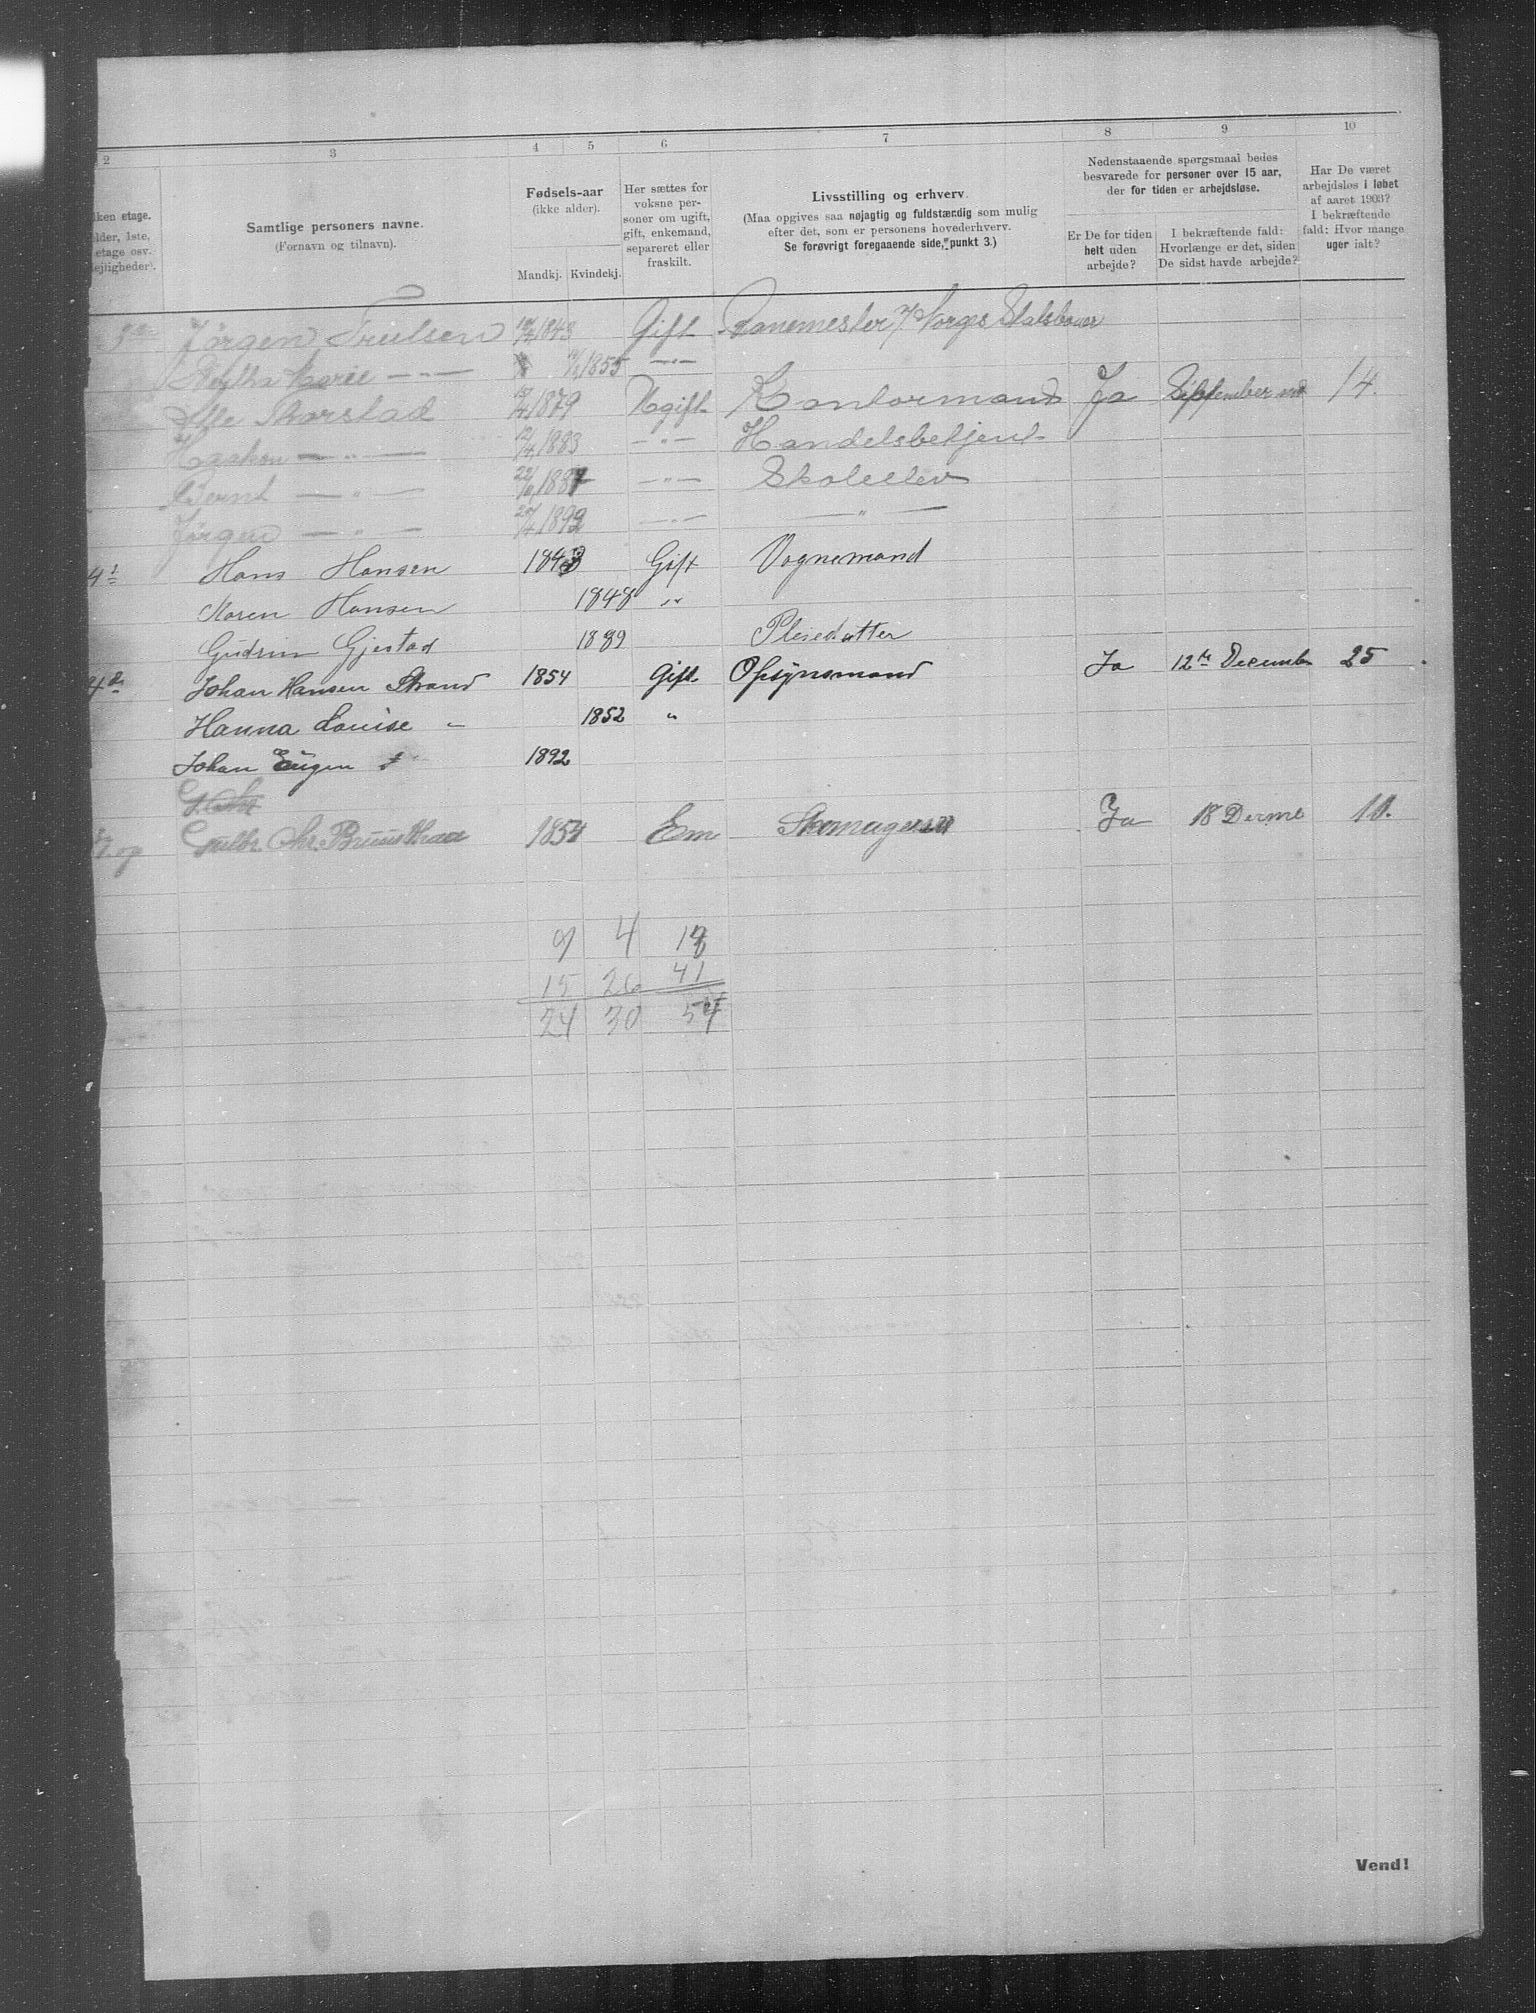 2 3 4 5 6 7 8 9 10
lken etage.
lder, 1ste,
etage osv.
lejligheder).
Samtlige personers navne.
(Fornavn og tilnavn).
Fødsels-aar
(ikke alder).
Mandkj. Kvindekj.
Her sættes for
voksne per-
soner om ugift,
gift, enkemand,
separeret eller
fraskilt.
Livsstilling og erhverv.
(Maa opgives saa nøjagtig og fuldstændig som mulig
efter det, som er personens hovederhverv.
Se forøvrigt foregaaende side, punkt 3.)
Nedenstaaende spørgsmaal bedes
besvarede for personer over 15 aar,
der for tiden er arbejdsløse.
Er De for tiden
helt uden
arbejde?
I bekræftende fald:
Hvorlænge er det, siden
De sidst havde arbejde?
Har De været
arbejdsløs i løbet
af aaret 1903?
I bekræftende
fald: Hvor mange
uger ialt?
Jørgen Trulsen 1843 Gift Banemester Norges Statsbaner
Marie — " — 1855 — " —
Thorstad 1879 Ugift Kontormand Ja September 14.
Haakon — " — 1883 — " — Handelsbetjent
Bernt — " — 1887 — " — Skoleelev
Jørgen — " — 1892 — " — — " —
4 1 Hans Hansen 1843 Gift Vognmand
Karen Hansen 1848 "
Gudrun Gjestad 1889 Pleiedatter
4 2 Johan Hansen Strand 1854 Gift Opsynsmand Ja 12te December 25
Hanna Louise " 1852 "
Johan Eugen 1892
Gulbr. Chr. 1854 Em Skomager Ja 18 10.
9 4 13
15 26 41
24 30 54
Vend!